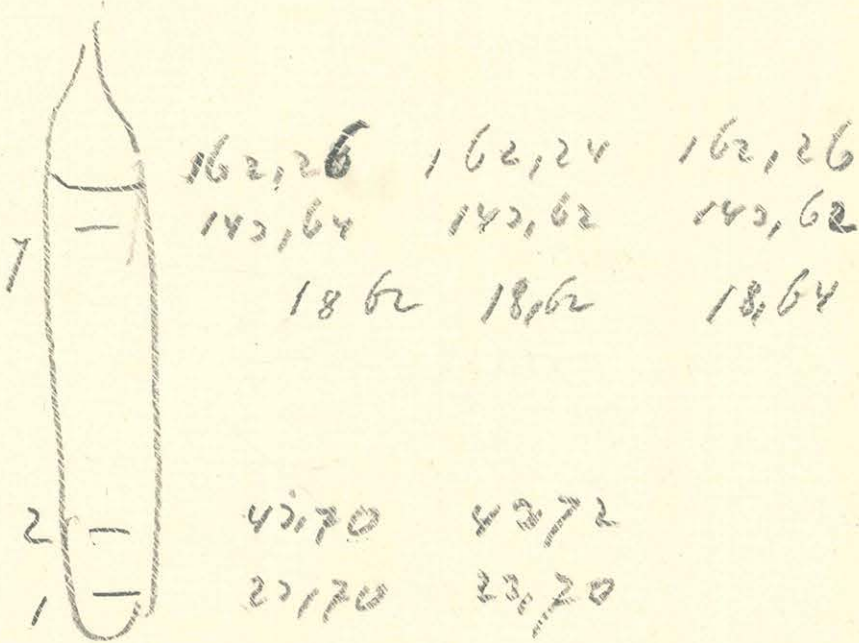 162,26 162,24 162,26
7 143,64 143,62 143,62
18 62 18,62 18,64
2 43,70 43,72
1 23,70 23,70